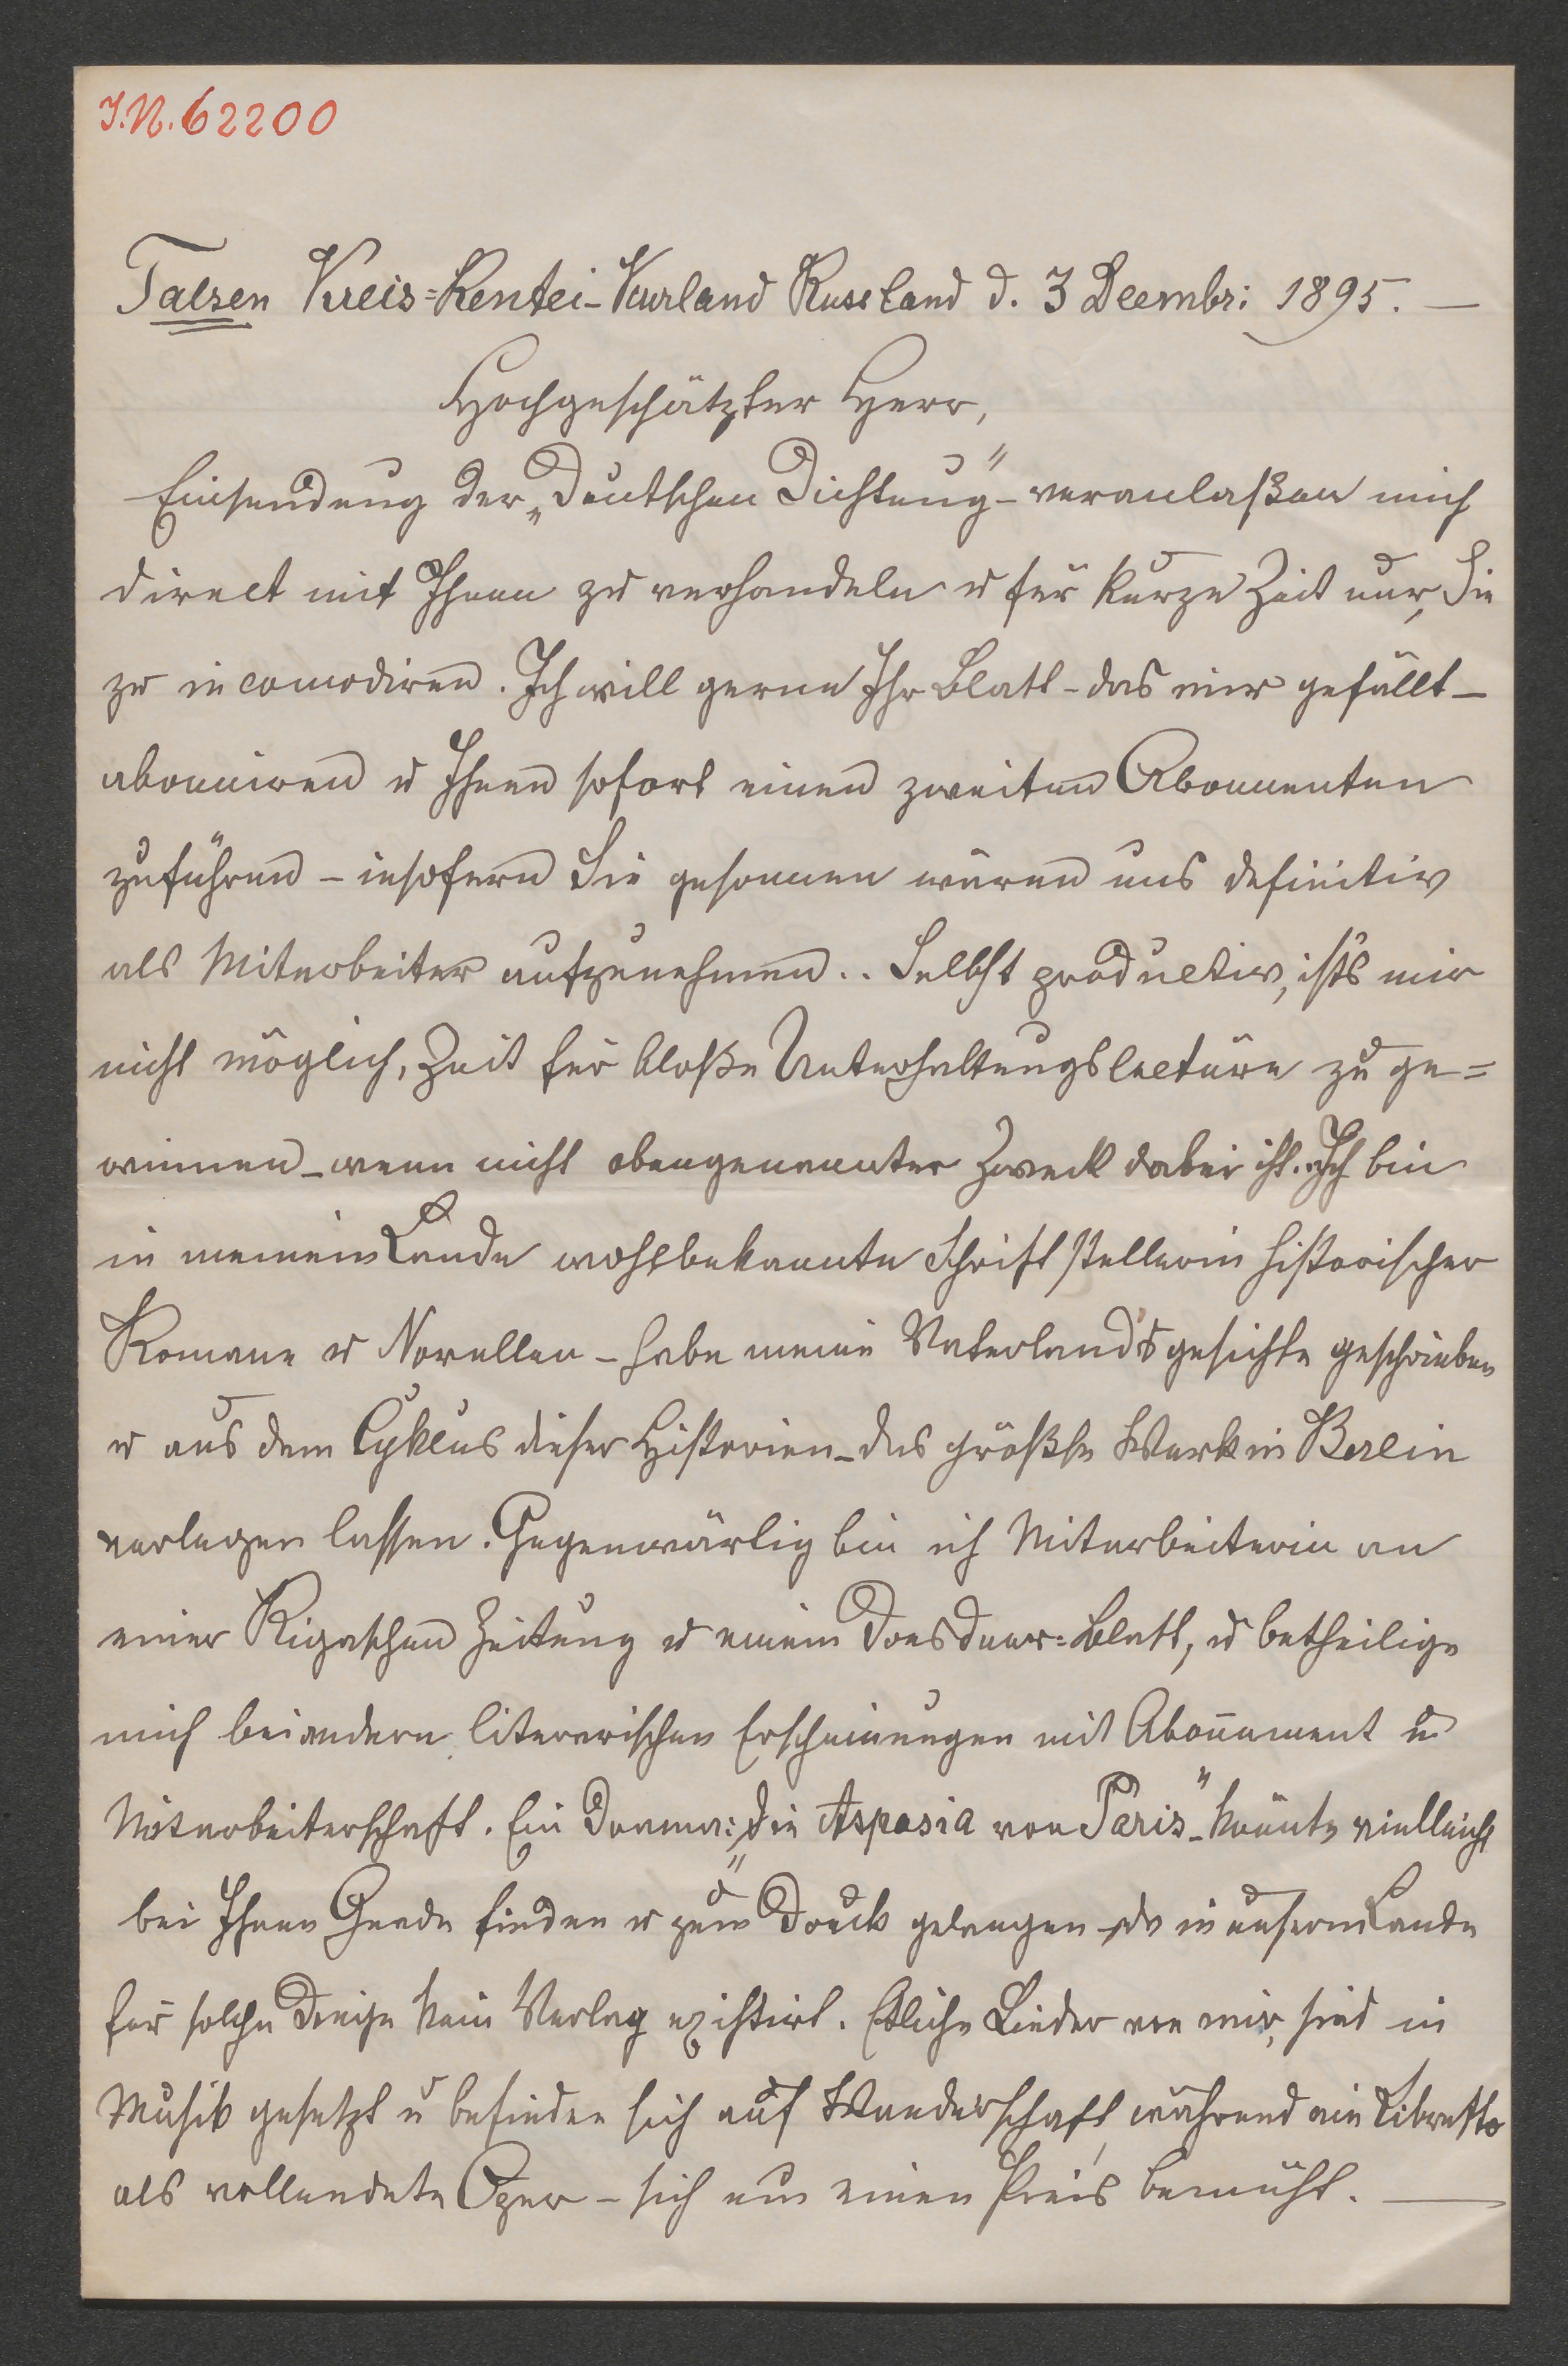 J.N. 62200
Talsen Kreis=Rentei-Kurland Russland d. 3 Decembr: 1895. —
Hochgeschätzter Herr,
Einsendung der „Deutschen Dichtung" - veranlaßen mich
direct mit Ihnen zu verhandeln u für kurze Zeit nur, Sie
zu incomodiren. Ich will gerne Ihr Blatt - das mir gefällt -
abonniren u Ihnen sofort einen zweiten Abonnenten
zuführen - insofern Sie gesonnen wären uns definitiv
als Mitarbeiter aufzunehmen.. Selbst productiv, ists mir
nicht möglich, Zeit für bloße Unterhaltungslectüre zu ge=
winnen - wenn nicht obengenannter Zweck dabei ist. Ich bin
in meinem Lande wohlbekannte Schriftstellerin historischer
Romane u Novellen - habe meine Vaterlandsgesichte geschrieben
u aus dem Cyklus dieser Historien - das größte Werk in Berlin
verlegen lassen. Gegenwärtig bin ich Mitarbeiterin an
einer Rigaschen Zeitung u einem Dresdner=Blatt, u betheilige
mich bei andern literarischen Erscheinungen mit Abonnement u
Mitarbeiterschaft. Ein Drama: „Die Aspasia von Paris" - könnte vielleicht
bei Ihnen Gnade finden u zum Druck gelangen - da in unserm Lande
für solche Dinge kein Verlag existirt. Etliche Lieder von mir, sind in
Musik gesetzt u befinden sich auf Wanderschaft, während ein Libretto
als vollendete Oper - sich um einen Preis bemüht. —